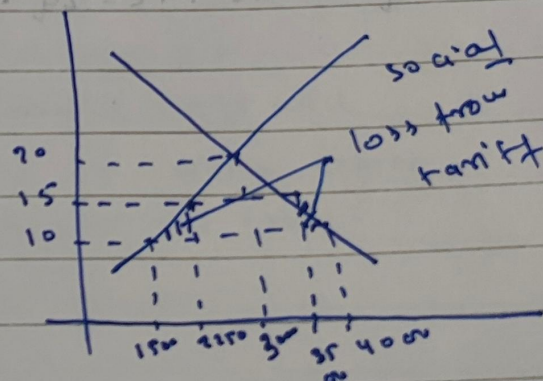 social
loss from
tariff
20
15
10
1500
2250
3000
3500
4000